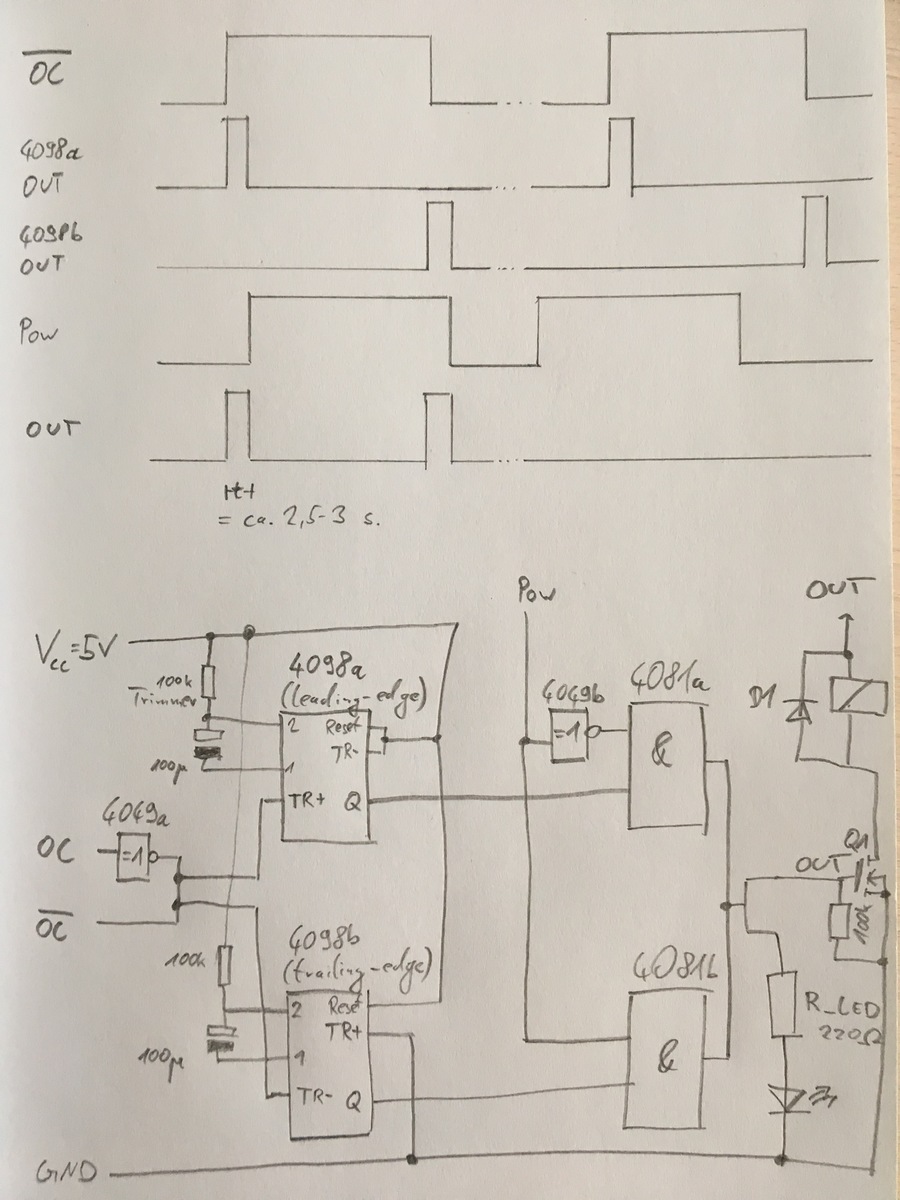 O̅C̅
4098a
OUT
4098b
OUT
Pow
OUT
t
= ca. 2,5-3 s.
Pow
OUT
Vcc=5V
4098a
(leading-edge)
100k
Trimmer
2
Reset
TR-
100µ
1
TR+
Q
4049b
=1
4081a
&
D1
4049a
OC
=1
O̅C̅
Q1
OUT
100k
100k
4098b
(trailing-edge)
2
Reset
TR+
100µ
1
TR-
Q
4081b
&
R_LED
220Ω
GND